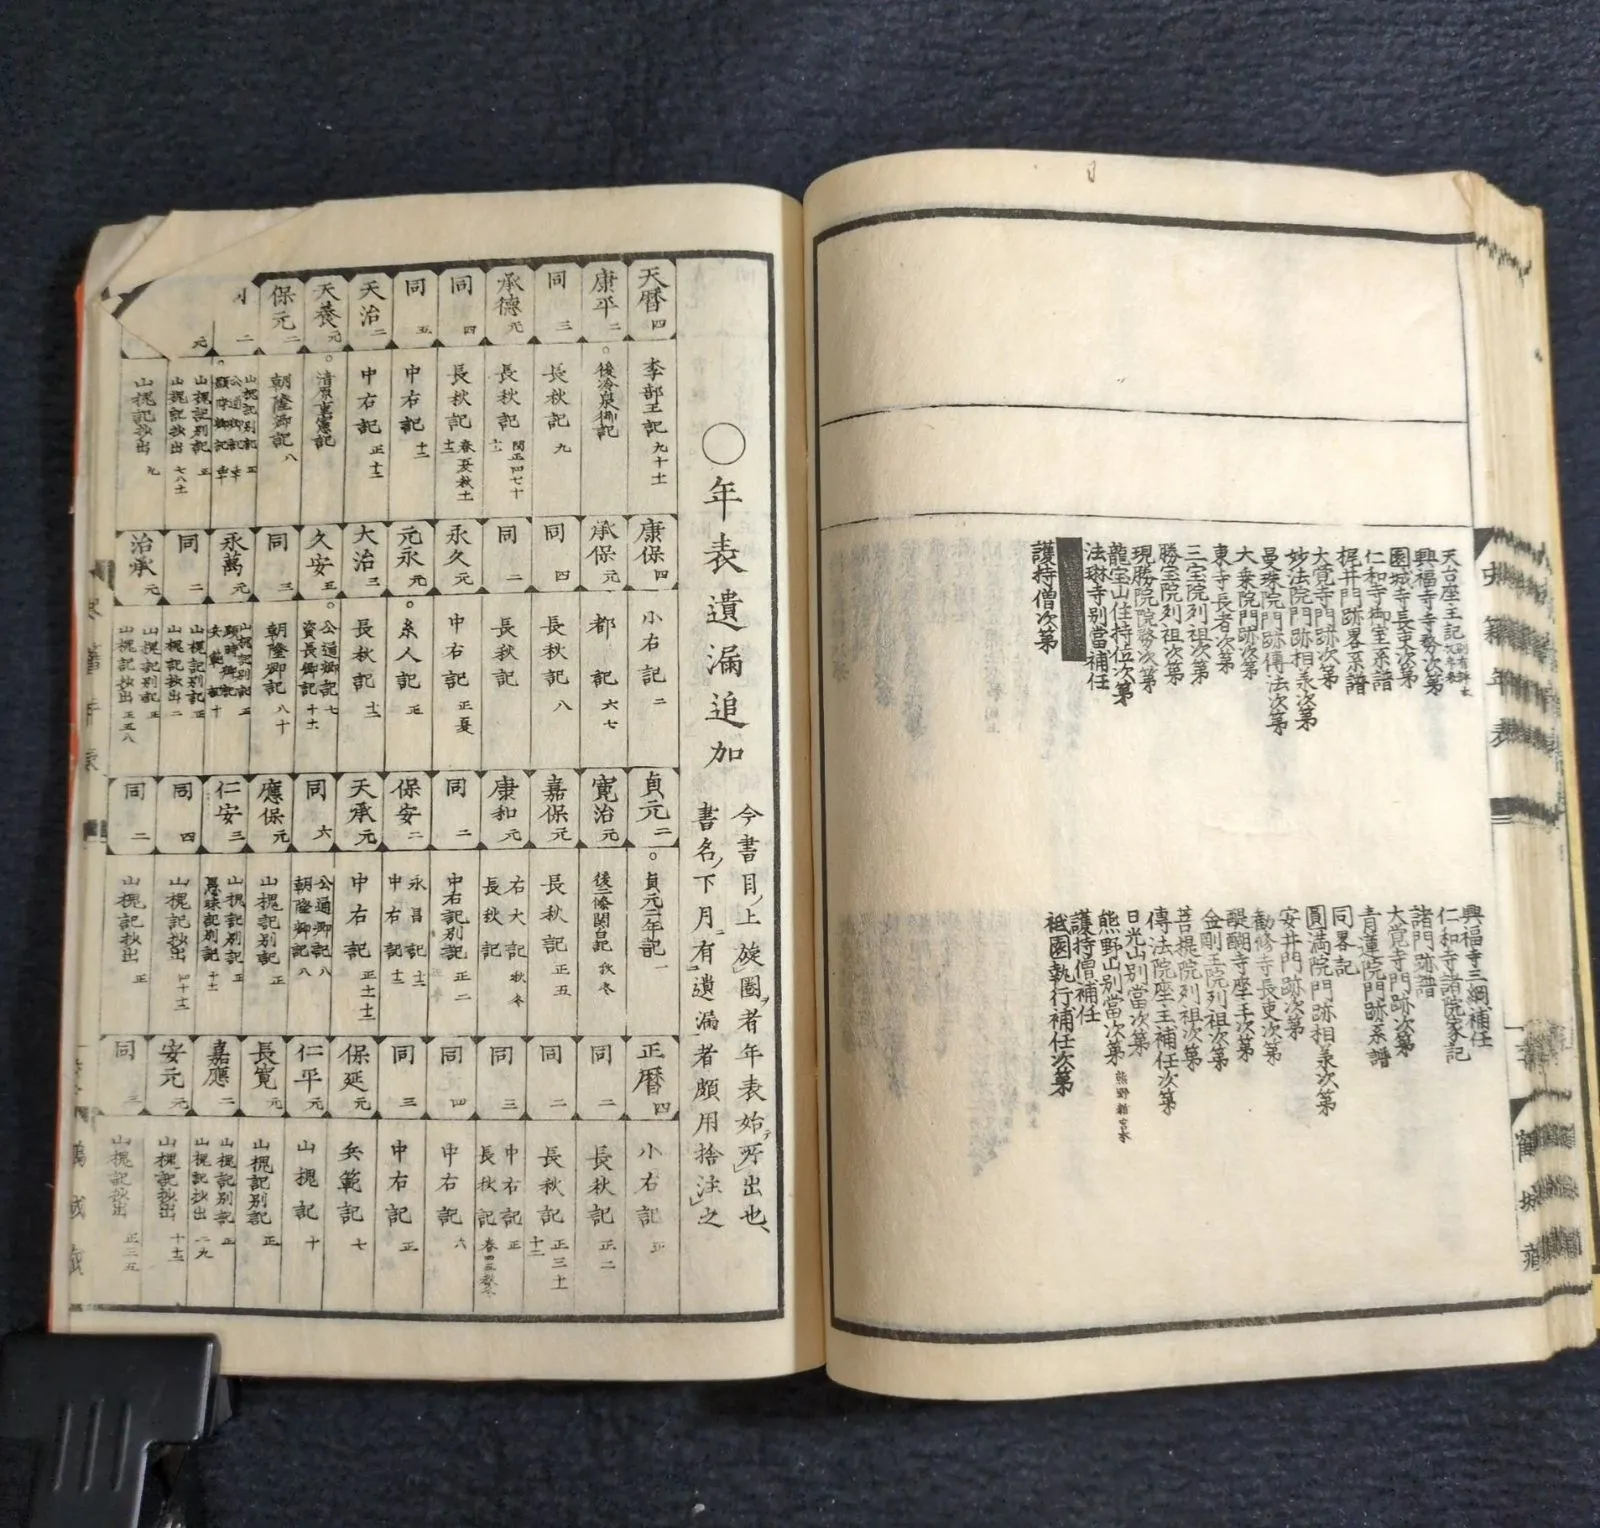 史籍年表
天台座主記
興福寺寺務次第
園城寺長吏次第
仁和寺御室系譜
梶井門跡畧系譜
大覚寺門跡次第
妙法院門跡相承次第
曼珠院門跡傳法次第
大乗院門跡次第
東寺長者次第
三宝院列祖次第
勝宝院列祖次第
現勝院院務次第
龍宝山住持位次第
法琳寺別當補任
護持僧次第
興福寺三綱補任
仁和寺諸院家記
諸門跡譜
大覚寺門跡次第
青蓮院門跡系譜
同畧記
圓満院門跡相承次第
安井門跡次第
勧修寺長吏次第
醍醐寺座主次第
金剛王院列祖次第
菩提院列祖次第
傳法院座主補任次第
日光山別當次第
熊野山別當次第
護持僧補任
祗園執行補任次第
〇年表遺漏追加
今書目ノ上ニ施圏ヲ者年表始テ所出也、
書名ノ下月ニ有遺漏者頗用捨注之
天暦 四
康平 二
同 三
承德 元
同 四
同 五
天治 二
天養 元
保元 二
二
元
李部王記 九十十二
後冷泉御記
長秋記 九
長秋記 閏正四七十十二
長秋記 春夏秋十十二
中右記 十二
中右記 正十二
朝隆卿記 八
山槐記別記 正
山槐記別記 正
山槐記抄出 七八十二
山槐記抄出 九
康保 四
承保 元
同 四
同 二
永久 元
元永 元
大治 三
久安 五
同 三
永萬 元
同 二
治承 元
小右記 二
都記 六七
長秋記 八
長秋記
中右記 正夏
糸人記 正
長秋記 十二
公通卿記 七
資長卿記 十十二
朝隆卿記 八十
山槐記別記 正
顕時卿記
山槐記別記 正
山槐記抄出 二
山槐記別記 正
山槐記抄出 正五八
貞元 二
寛治 元
嘉保 元
康和 元
同 二
保安 二
天承 元
同 六
應保 元
仁安 三
同 四
同 二
貞元二年記 一
後二條関白記 秋冬
長秋記 正五
右大記 秋冬
長秋記
中右記別記 正二
永昌記 十二
中右記 十二
中右記 正十十二
公通卿記 八
朝隆卿記 八
山槐記別記 正
山槐記別記 正
愚昧記別記 十二
山槐記抄出 四十十二
山槐記抄出 正
正暦 四
同 二
同 二
同 三
同 四
同 三
保延 元
仁平 元
長寛 元
嘉應 二
安元 元
同 三
小右記 正
長秋記 正二
長秋記 正三十十二
中右記 正
長秋記
中右記 六
中右記 正
兵範記 七
山槐記 十
山槐記別記 正
山槐記別記 正
山槐記抄出 一九
山槐記抄出 十十二
山槐記抄出 正三五